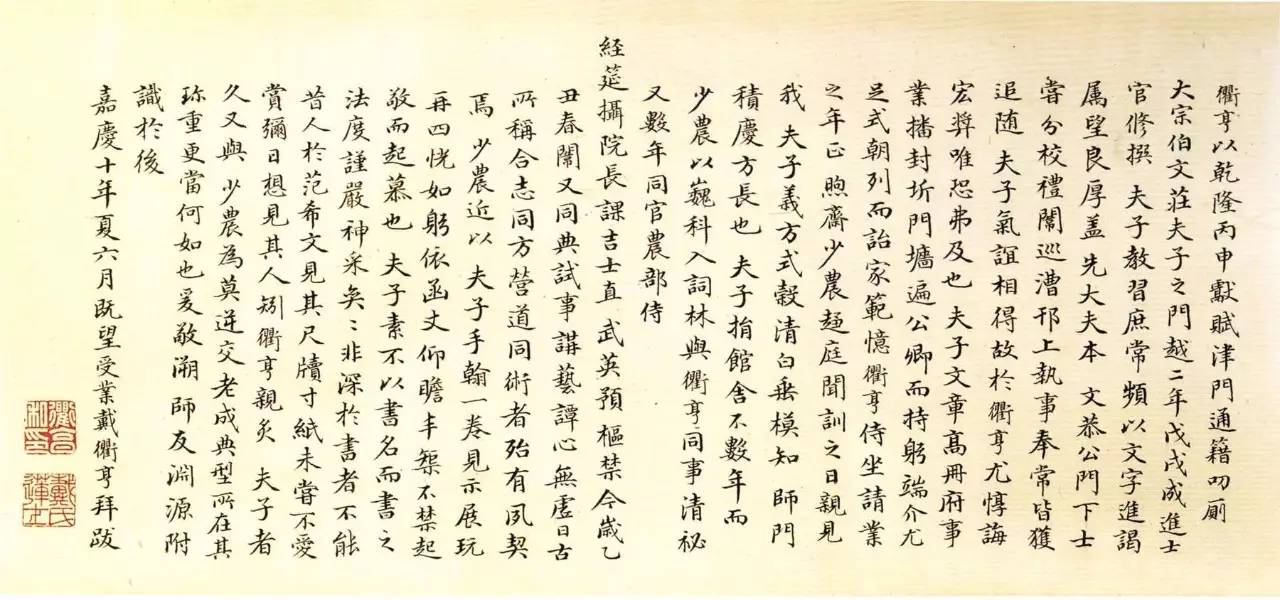 衢亨以乾隆丙申獻賦津門通籍叨廁
大宗伯文莊夫子之門越二年戊戌成進士
官修撰 夫子教習庶常頻以文字進謁
属望良厚盖先大夫本 文恭公門下士
嘗分校禮闈巡漕邗上執事奉常皆獲
追随 夫子氣誼相得故於衢亨尤惇誨
宏奨唯恐弗及也 夫子文章髙冊府事
業播封圻門墻遍公卿而持躬端介尤
足式朝列而詒家範憶衢亨侍坐請業
之年正煦齋少農趨庭聞訓之日親見
我 夫子義方式穀清白垂模知 師門
積慶方長也 夫子捐館舍不數年而
少農以巍科入詞林與衢亨同事清祕
又數年同官農部侍
経筵攝院長課吉士直 武英預樞禁今嵗乙
丑春闈又同典試事講藝譚心無虛日古
所稱合志同方營道同術者殆有夙契
焉 少農近以 夫子手翰一卷見示展玩
再四恍如躬依函丈仰瞻丰槼不禁起
敬而起慕也 夫子素不以書名而書之
法度謹嚴神采奐〻非深於書者不能
昔人於范希文見其尺牘寸紙未嘗不愛
賞彌日想見其人矧衢亨親炙 夫子者
久又與 少農為莫逆交老成典型所在其
珎重更當何如也爰敬溯 師友淵源附
識於後
嘉慶十年夏六月既望受業戴衢亨拜跋